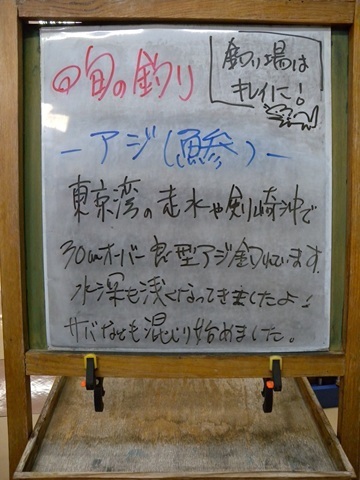 旬の釣り
釣り場は
キレイに!
ーアジ(鯵)ー
東京湾の走水や剣崎沖で
30cmオーバー良型アジ釣れています。
水深も浅くなってきましたよ!
サバなども混じり始めました。